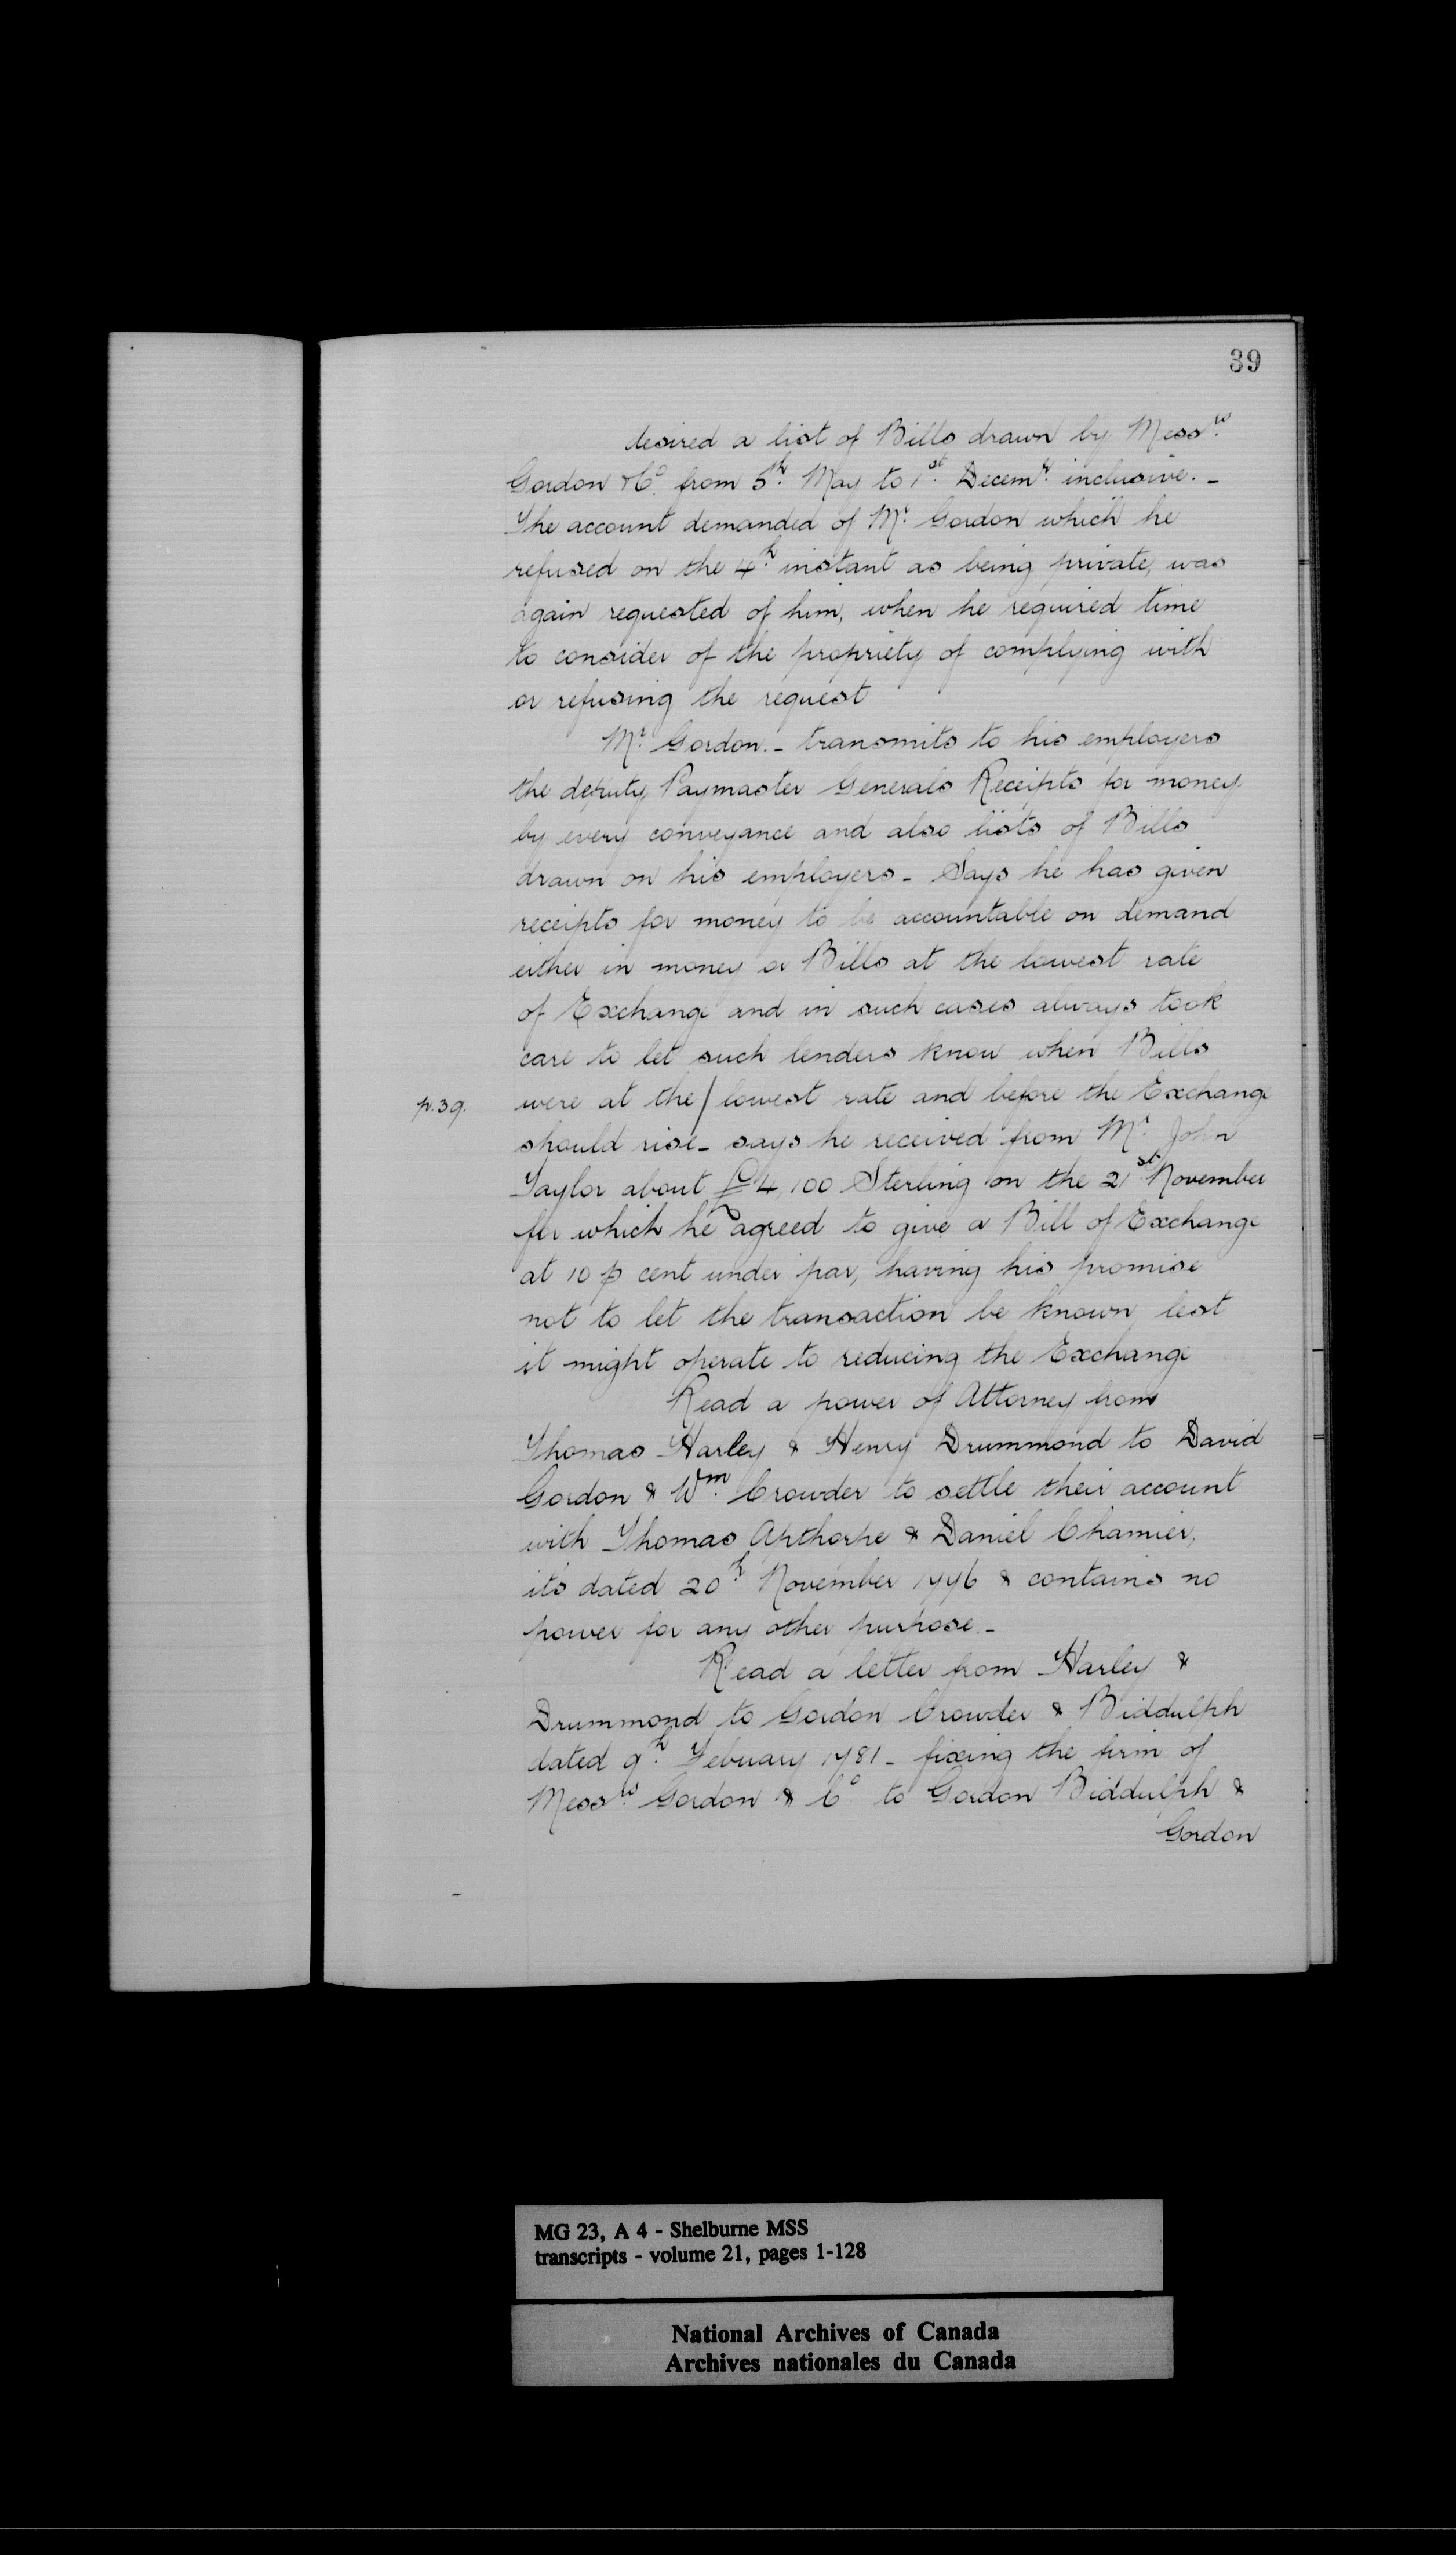 39
desired a list of Bills drawn by Mess.rs
Gordon &Co. from 5.h May to 1.st Decem.r inclusive. -
The account demanded of Mr. Gordon which he
refused on the 4.h instant as being private, was
again requested of him, when he required time
to consider of the propriety of complying with
or refusing the request
Mr. Gordon. - transmits to his employers
the deputy Paymaster Generals Receipts for money
by every conveyance and also lists of Bills
drawn on his employers - Says he has given
receipts for money to be accountable on demand
either in money or Bills at the lowest rate
of Exchange and in such cases always took
care to let such lenders know when Bills
p. 39. were at the / lowest rate and before the Exchange
should rise - says he received from Mr. John
Taylor about £4,100 Sterling on the 21.st November
for which he agreed to give a Bill of Exchange
at 10 p cent under par, having his promise
not to let the transaction be known, lest
it might operate to reducing the Exchange
Read a power of Attorney from
Thomas Harley & Henry Drummond to David
Gordon & Wm. Crowder to settle their account
with Thomas Apthorpe & Daniel Chamier,
its dated 20.h November 1776 & contains no
power for any other purpose. -
Read a letter from Harley &
Drummond to Gordon Crowder & Biddulph
dated 9.h Febuary 1781 - fixing the firm of
Mess.rs Gordon & Co to Gordon Biddulph &
Gordon
MG 23, A 4 - Shelburne MSS
transcripts - volume 21, pages 1-128
National Archives of Canada
Archives nationales du Canada